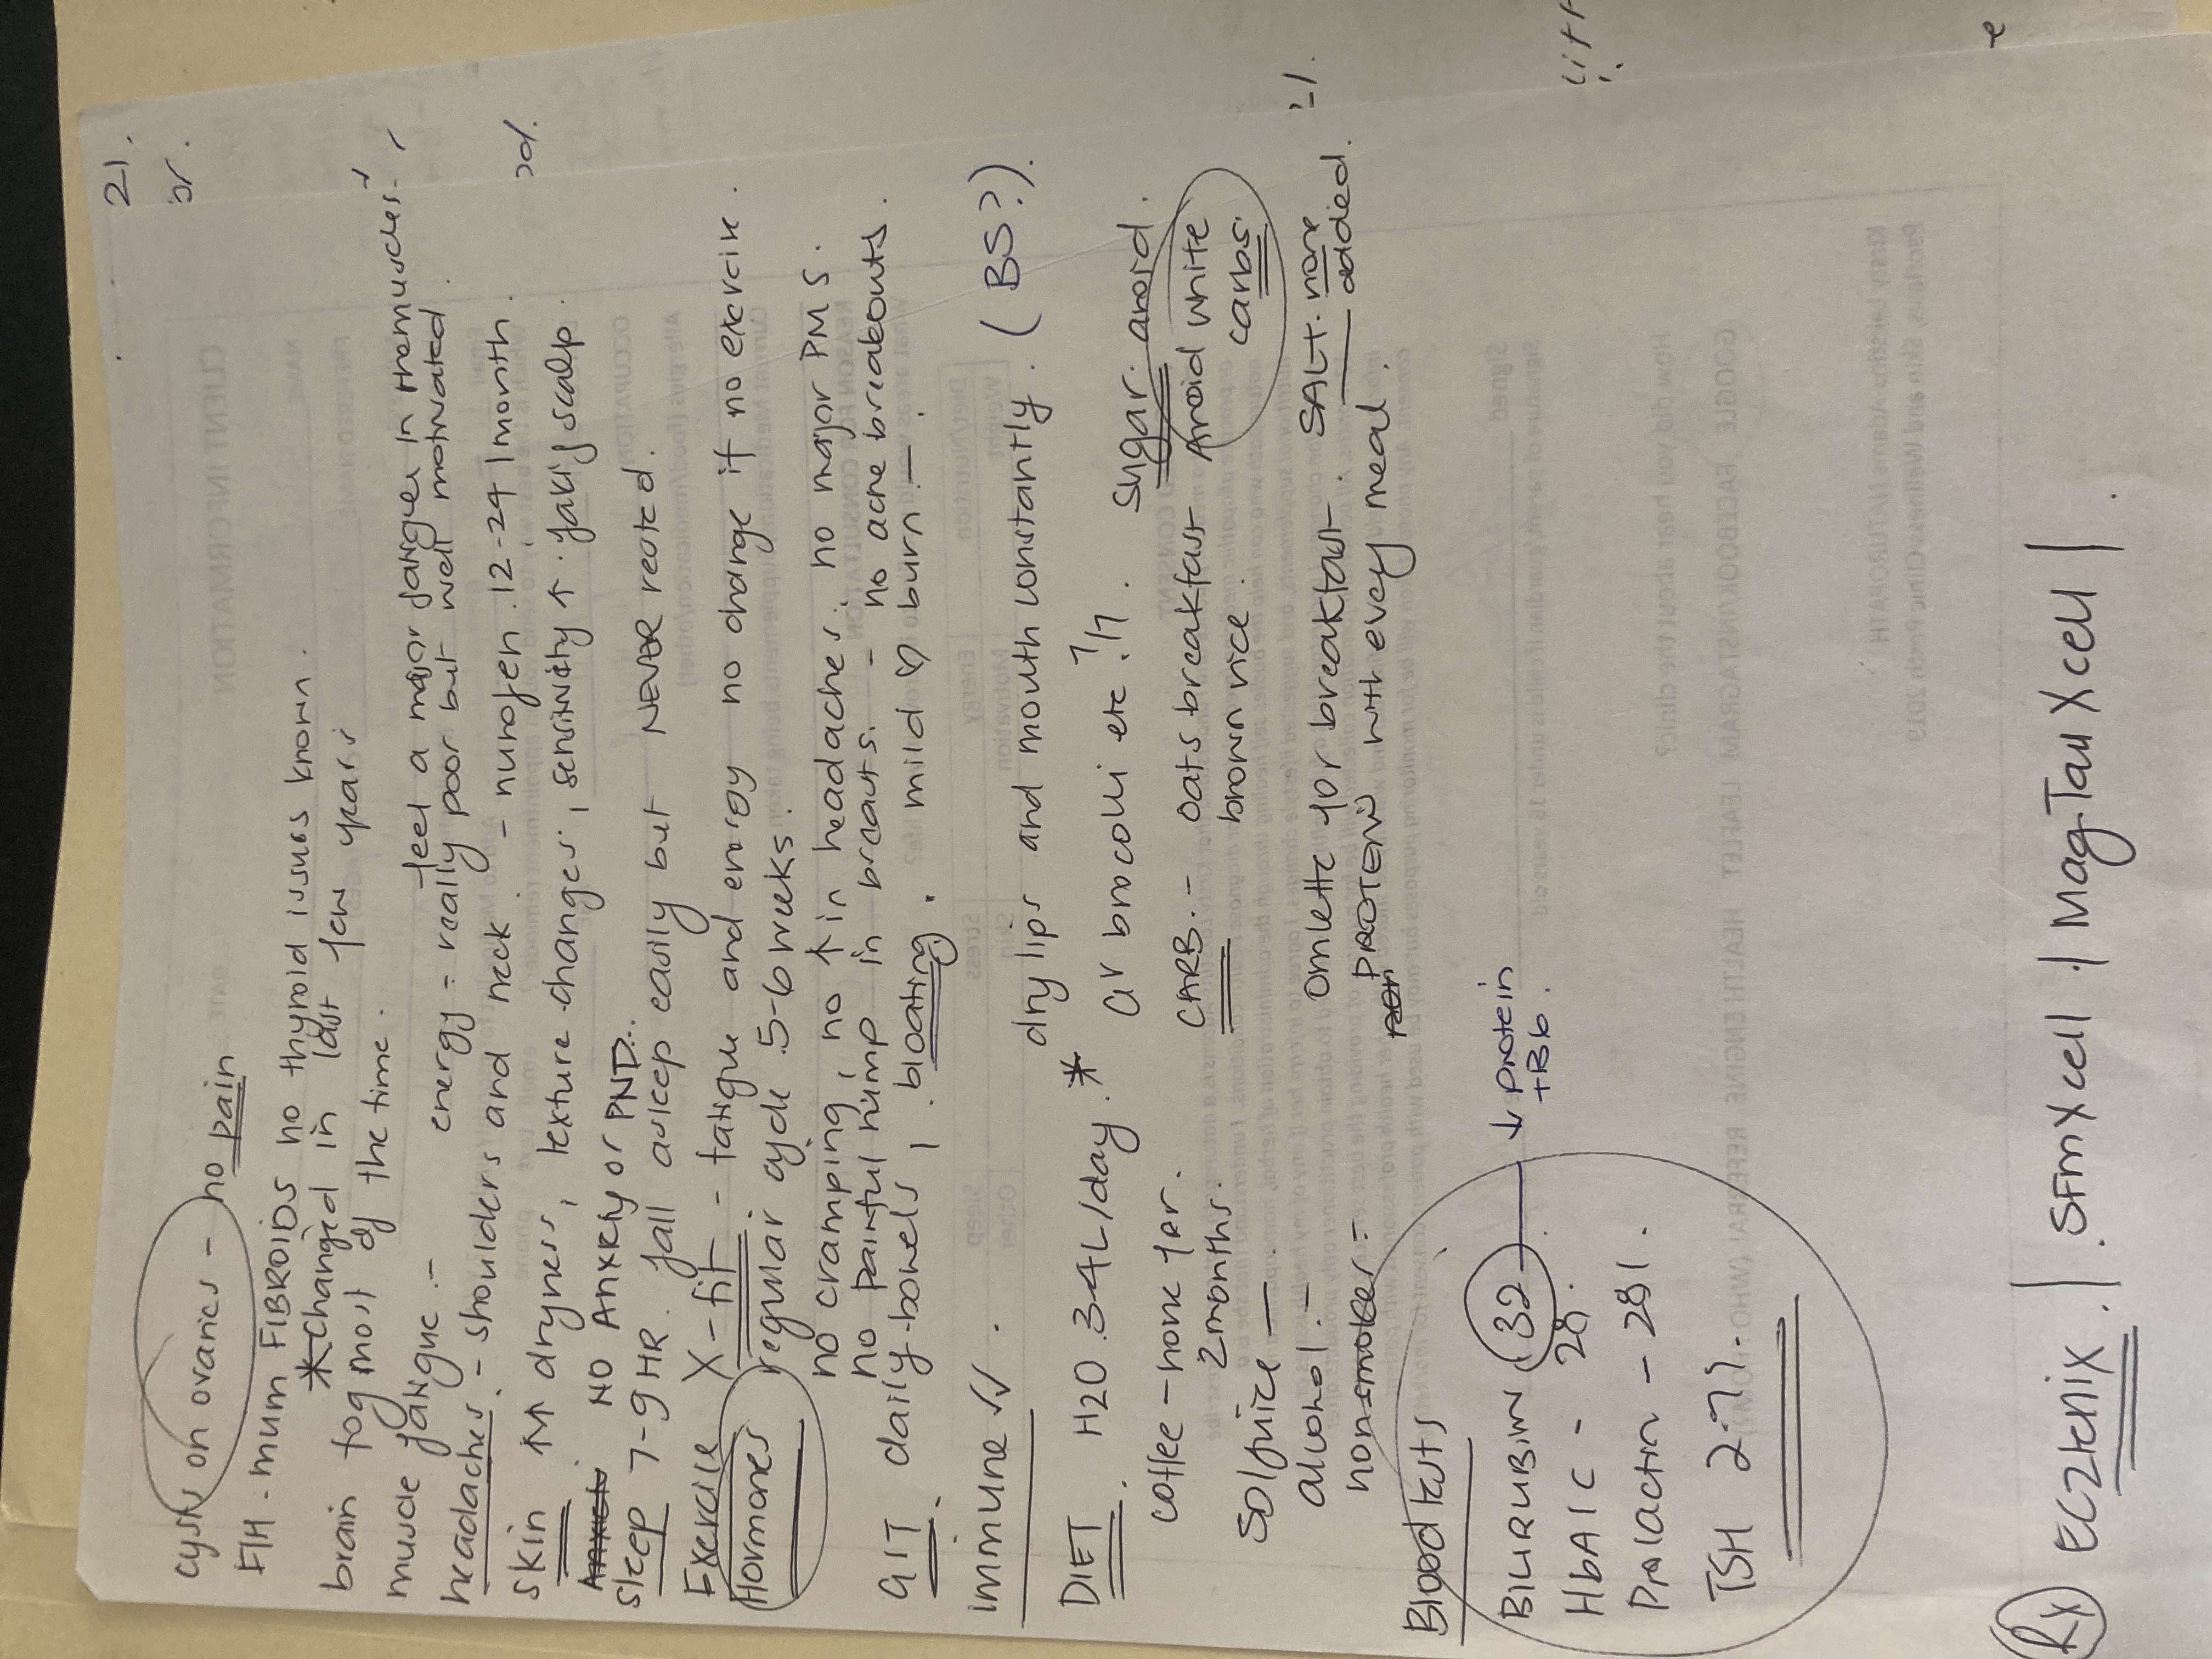 cysts on ovaries - no pain
FIH - mum FIBROIDS no thyroid issues known.
* changed in last few years
brain fog most of the time.
muscle fatigue - feel a major fatigue in themuscles
energy = really poor but well motivated.
headaches. - shoulders and neck. - nurofen. 12-24 / month.
skin ↑↑ dryness, texture changes, sensitivity ↑. flaky scalp.
NO Anxiety or PND.
sleep 7-9 HR. fall asleep easily but NEVER rested.
Exercise X-fit - fatigue and energy no change if no exercise.
Hormones regular cycle 5-6 weeks.
no cramping, no ↑ in headaches. no major PMS.
no painful lump in breasts. - no acne breakouts.
GIT. daily bowels, bloating. mild ♡ burn. —
immune ✓✓.
dry lips and mouth constantly. (BS?).
DIET. H20. 3-4L/day. *
ar brocolli etc ?/7.
Sugar. avoid.
coffee - none for 2 months.
CARB. - oats breakfast
brown rice.
Avoid white carbs.
Softjuice —
alcohol. -
omlette for breakfast.
SALT. none added.
nonsmoker -
PROTEIN with every meal.
Blood tests
BILIRUBIN (32) ↓ protein + B6.
HbAIC - 28.
Prolactin - 281.
TSH 2.71.
Rx ECZtenix. | SFmXcell. | MagTauXcell |.
21.